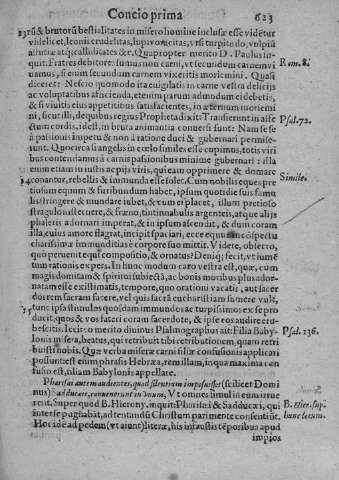 Concio prima 623
& brutorũ bestialitates in misero homine inclusæ esse vidētur
videlicet, leonis crudelitas, lupi voracitas, vrsi turpitudo, vulpiũ
astutiæ atq; calliditates &c. Quapropter merito D. Paulus in-
quit. Fratres debitores sumus non carni, vt secundum carnem vi
uamus, si enim secundum carnem vixeritis moriemini. Quasi
diceret: Nescio quo modo ita euigilatis in carne vestra delicijs
ac voluptatibus afficienda, etenim parum admodum ei debetis,
& si vitijs eius appetitibus satisfacientes, in æternum moriemi
ni, securi illi, de quibus regius Propheta dixit: Transierunt in affe
ctum cordis, idest, in bruta animantia conuersi sunt: Nam se se
à passionis impetu & non à ratione duci & gubernari permise-
runt. Quocirca si angelis in cœlo similes esse cupimus, totis viri
bus contendamus à carnis pasionibus minime gubernari: illa
enim etiam in iustis ac pijs viris, quieam opprimere & domare
conantur, rebellis & immunda esse solet. Cum nobilis eques pre
tiosum equum & furibundum habet, ipsum quotidie suis famu
lis stringere & mundare iubet, & cum ei placet, illum pretioso
stragulo insternere, & fræno, tintinnabulis argenteis, atque alijs
phaleris adornari imperat, & in ipsum ascendit, & dum coram
illa, cuius amore flagrat, incipit spaciari, ecce equus in cōspectu
charissimæ immunditias è corpore suo mittit. Videte, obsecro,
quò peruenit equi compositio, & ornatus? Deniq; fecit, vt iumē
tum rationis expers. In hunc modum caro vestra est, quæ, cum
magis domitam & spiritui subiectā, ac bonis moribus plus ador-
natam esse existimatis, tempore, quo orationi vacatis, aut sacer
dotem sacram facere, vel quis sacrā eucharistiam sumere vult,
tunc ipsa stimulus quosdam immundos ac turpissimos ex se pro
ducit, quos & vos tateri coram sacerdote, & ipse eos audire eru-
bescitis. Ecce: merito diuinus Psalmographus ait: Filia Baby-
lonis misera, beatus, qui retribuit tibi retributionem, quam retri
buisti nobis. Quæ verba miseræ carni filiæ confusionis applicari
possunt: est enim phrasis Hebræa, rem illam, in qua maxima con
fusio est, filiam Babylonis appellare.
Pharisæi autem audientes, quod silentium imposuisset (scilicet Domi
nus) Sadducæis, conuenerunt in vnum, Vt omnes simul in eum irrue
rent. Super quod B. Hierony. inquit: Pharisæi & Sadducæi, qui
inter se pugnabāt, ad tentandũ Christum parimente consentiũt.
Hoc idē ad pedem (vt aiunt) literæ, his infaustis tēporibus apud
impios
Rom. 8.
Psal. 72.
Simile.
Psal. 136.
B. Hier. sup.
hunc locum.